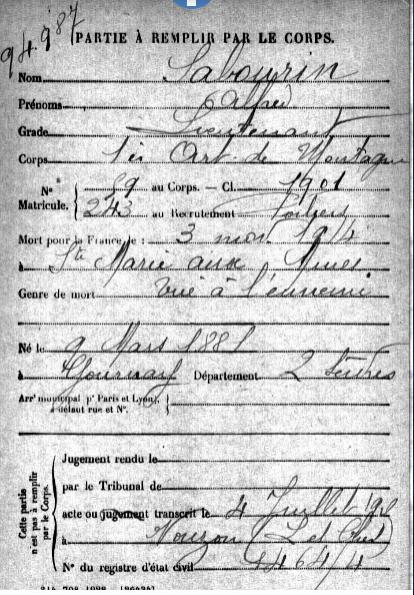 94.987
PARTIE À REMPLIR PAR LE CORPS.
Nom Sabourin
Prénoms Alfred
Grade Lieutenant
Corps 1er Art. de Montagne
Nº 59 au Corps. — Cl. 1901
Matricule. 243 au Recrutement Poitiers
Mort pour la France le : 3 nov. 1914
à Ste Marie aux Mines
Genre de mort Tué à l'ennemi
Né le 9 Mars 1881
à Département 2 Sèvres
Arrt municipal (pr Paris et Lyon),
à défaut rue et Nº.
Cette partie
n'est pas à remplir
par le Corps.
Jugement rendu le
par le Tribunal de
acte ou jugement transcrit le 4 Juillet
à Mouzon (L et Cher)
Nº du registre d'état civil 4464/4